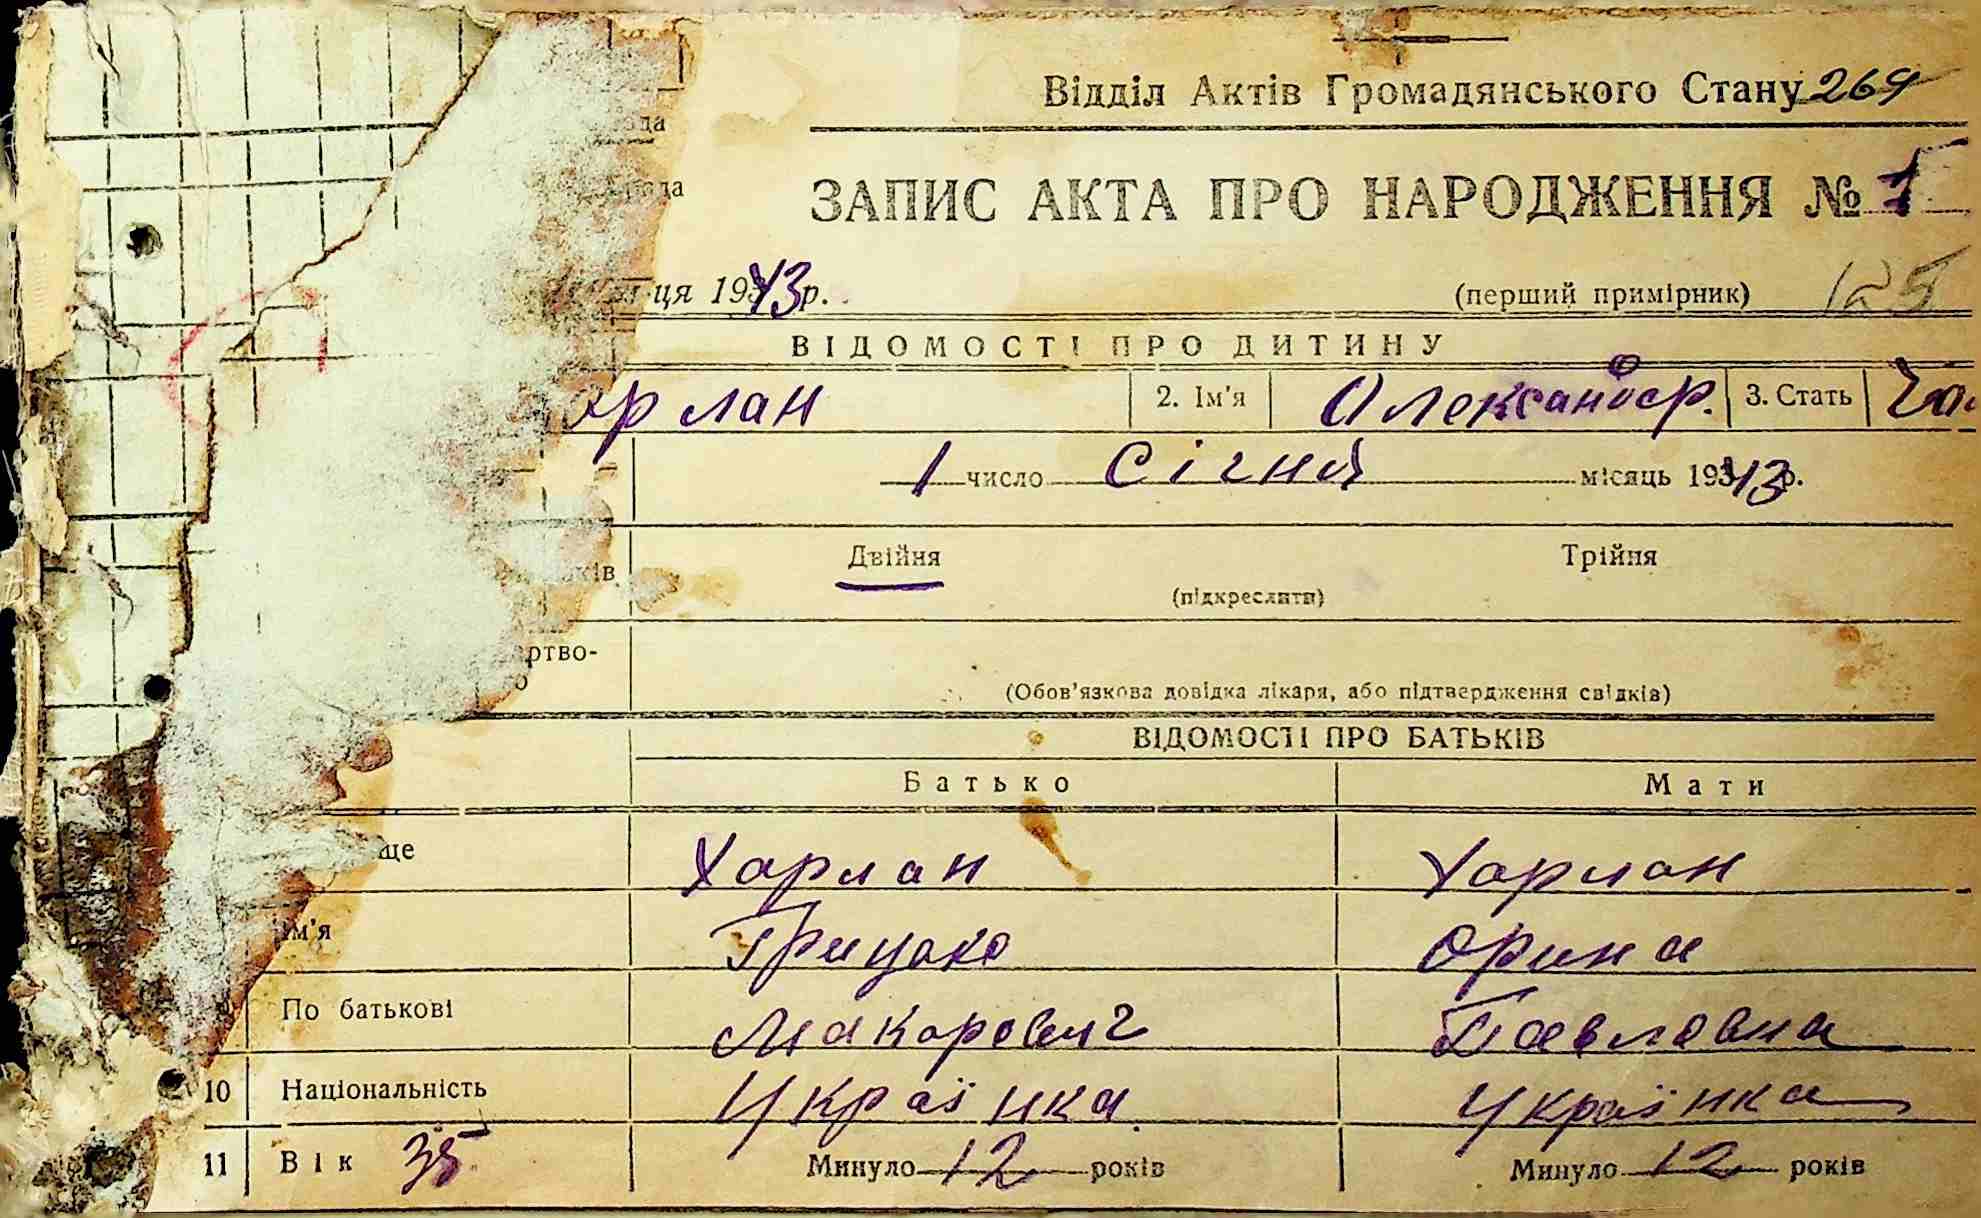 Відділ Актів Громадянського Стану 269
ЗАПИС АКТА ПРО НАРОДЖЕННЯ № 1
ця 1943 р. (перший примірник) 125
ВІДОМОСТІ ПРО ДИТИНУ
арлан 2. Ім'я Олександр. 3. Стать
1 число Січня місяць 1943 р.
ків Двійня Трійня
(підкреслити)
ртво-
о (Обов'язкова довідка лікаря, або підтвердження свідків)
ВІДОМОСТІ ПРО БАТЬКІВ
Батько Мати
ще Харлан Харлан
Ім'я Грицько Орина
По батькові Макарович Павловна
10 Національність Українка Українка
11 Вік 35 Минуло 12 років Минуло 12 років